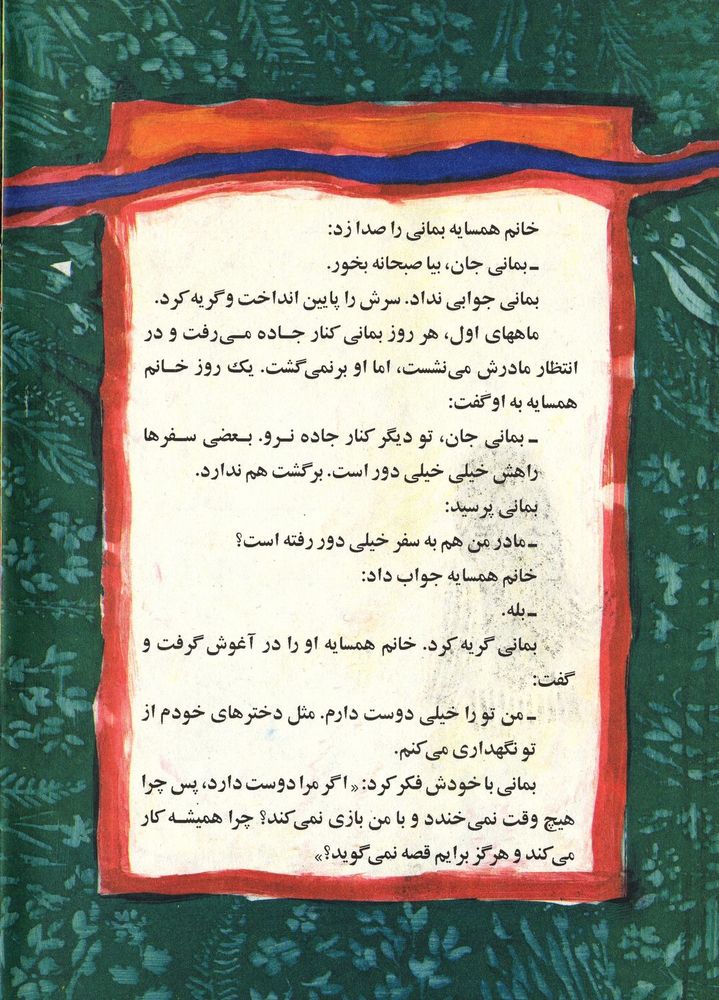 خانم همسایه بمانی را صدا زد:
ـ بمانی جان، بیا صبحانه بخور.
بمانی جوابی نداد. سرش را پایین انداخت و گریه کرد.
ماههای اول، هر روز بمانی کنار جاده می‌رفت و در
انتظار مادرش می‌نشست، اما او برنمی‌گشت. یک روز خانم
همسایه به او گفت:
ـ بمانی جان، تو دیگر کنار جاده نرو. بعضی سفرها
راهش خیلی خیلی دور است. برگشت هم ندارد.
بمانی پرسید:
ـ مادر من هم به سفر خیلی دور رفته است؟
خانم همسایه جواب داد:
ـ بله.
بمانی گریه کرد. خانم همسایه او را در آغوش گرفت و
گفت:
ـ من تو را خیلی دوست دارم. مثل دخترهای خودم از
تو نگهداری می‌کنم.
بمانی با خودش فکر کرد: «اگر مرا دوست دارد، پس چرا
هیچ وقت نمی‌خندد و با من بازی نمی‌کند؟ چرا همیشه کار
می‌کند و هرگز برایم قصه نمی‌گوید؟»